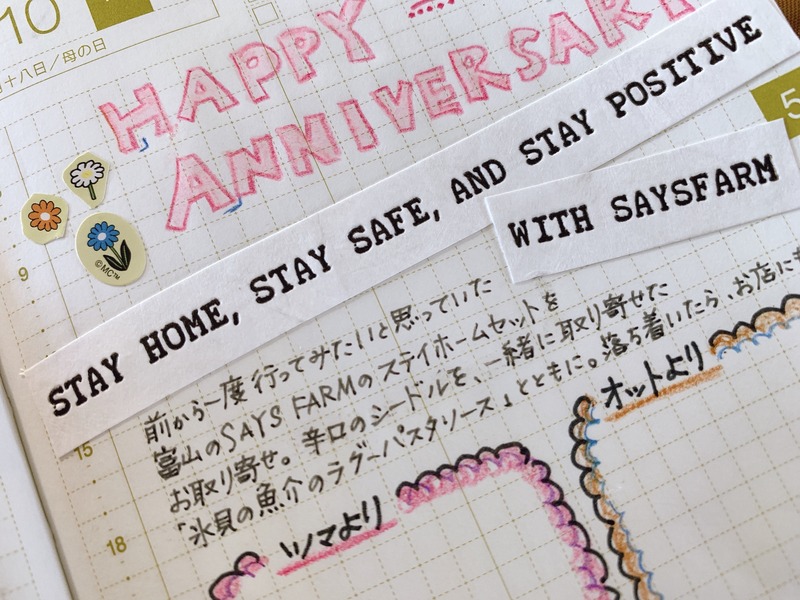 10
月十八日/母の日
HAPPY
ANNIVERSARY
STAY HOME, STAY SAFE, AND STAY POSITIVE
WITH SAYSFARM
5
9
©MC™
15
18
前から一度行ってみたいと思っていた
富山のSAYS FARMのステイホームセットを
お取り寄せ。辛口のシードルを、一緒に取り寄せた
「氷見の魚介のラグーパスタソース」とともに。落ち着いたら、お店にも
ツマより
オットより